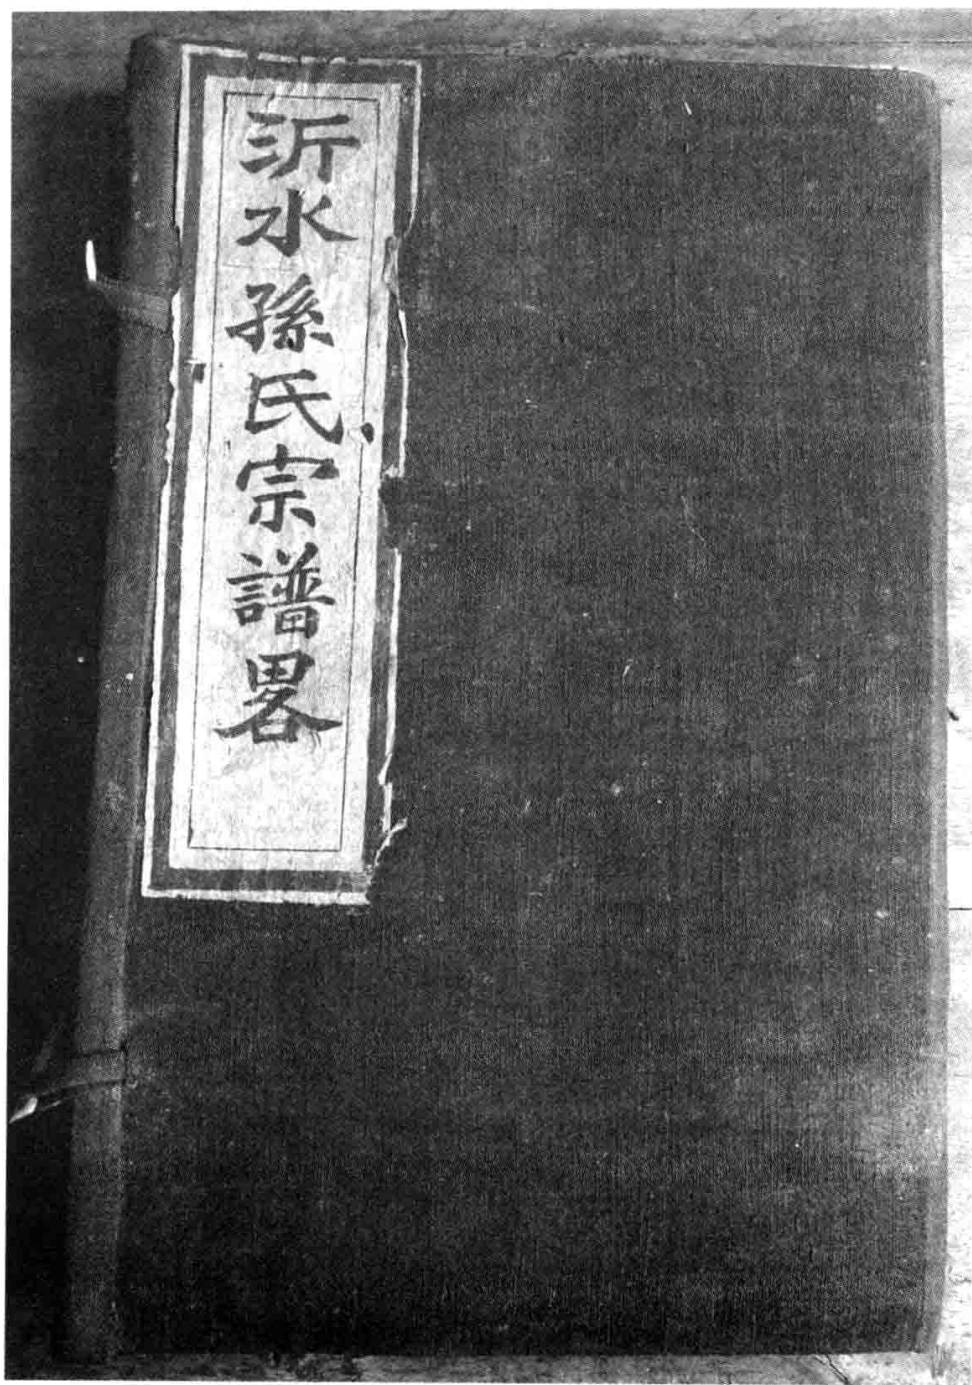 沂水孫氏宗譜畧